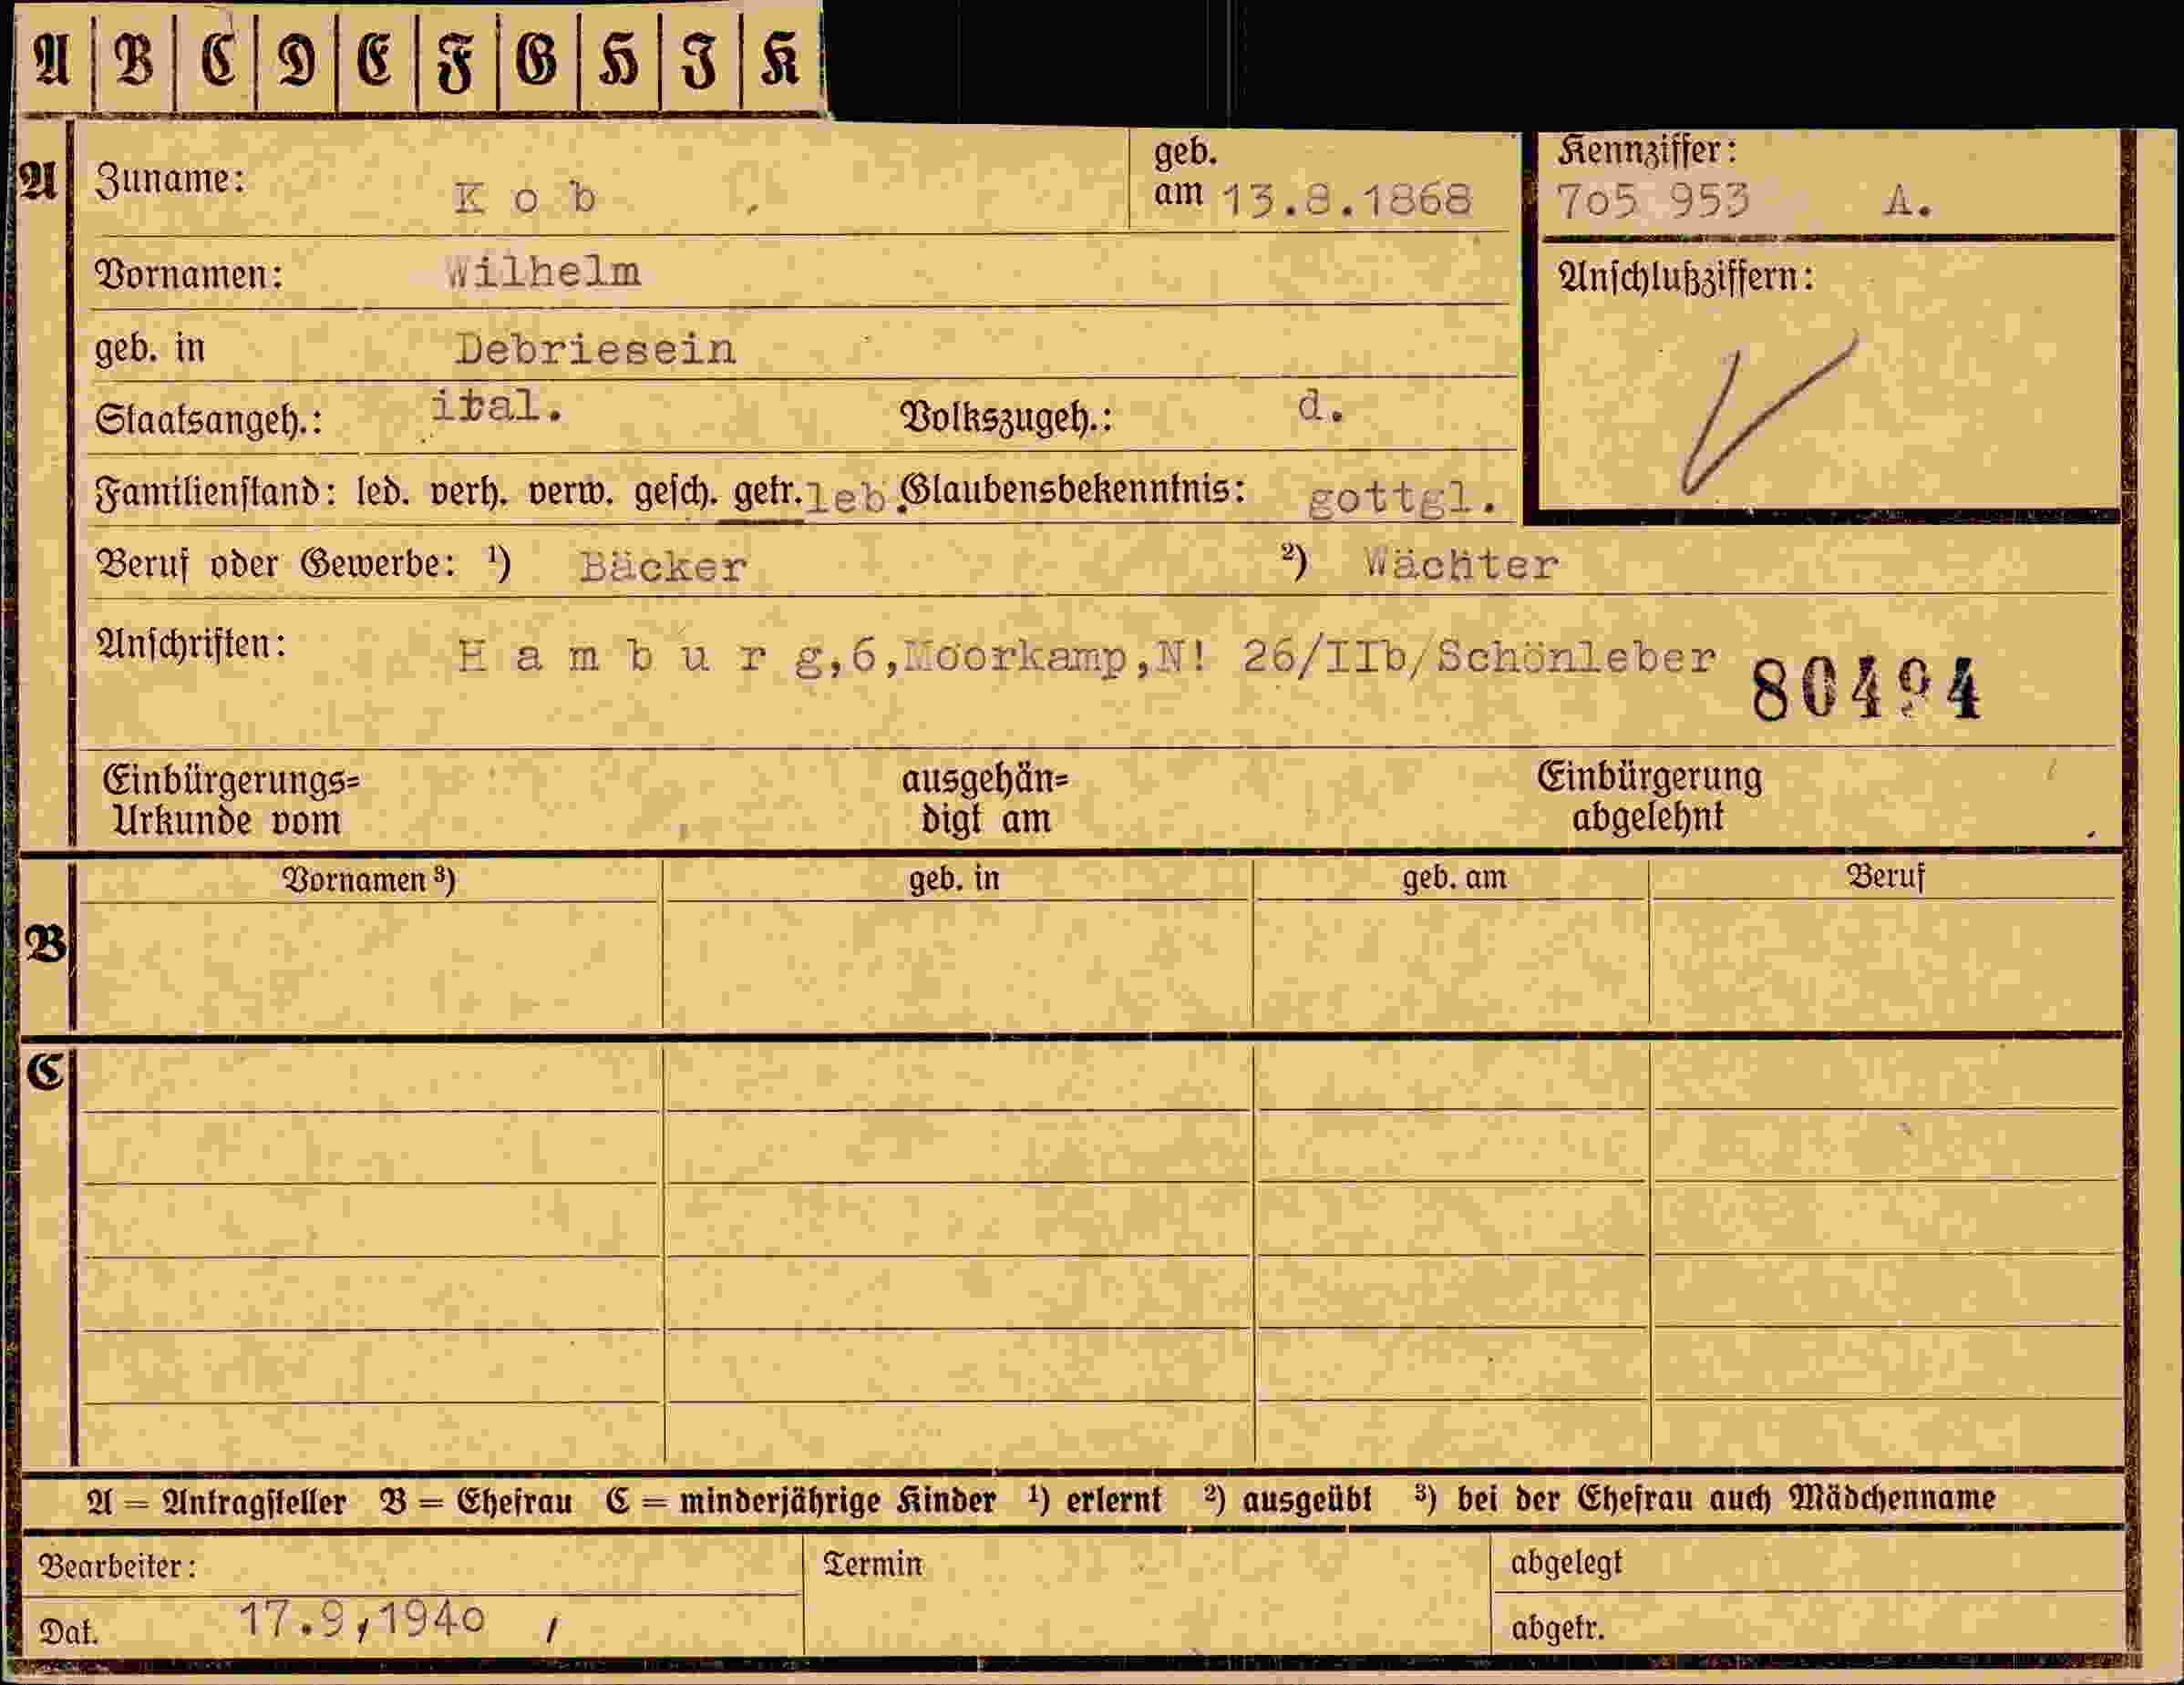 A B C D E F G H J K
A Zuname: K o b geb. am 13.8.1868 Kennziffer: 7o5 953 A.
Vornamen: Wilhelm Anschlußziffern:
geb. in Debriesein
Staatsangeh.: ital. Volkszugeh.: d.
Familienstand: led. verh. verw. gesch. getr. leb. Glaubensbekenntnis: gottgl.
Beruf oder Gewerbe: ¹) Bäcker ²) Wächter
Anschriften: H a m b u r g,6,Moorkamp,N! 26/IIb/Schönleber 80494
Einbürgerungs= ausgehän= Einbürgerung
Urkunde vom digt am abgelehnt
Vornamen ³) geb. in geb. am Beruf
B
C
A = Antragsteller B = Ehefrau C = minderjährige Kinder ¹) erlernt ²) ausgeübt ³) bei der Ehefrau auch Mädchenname
Bearbeiter: Termin abgelegt
Dat. 17.9,194o , abgetr.